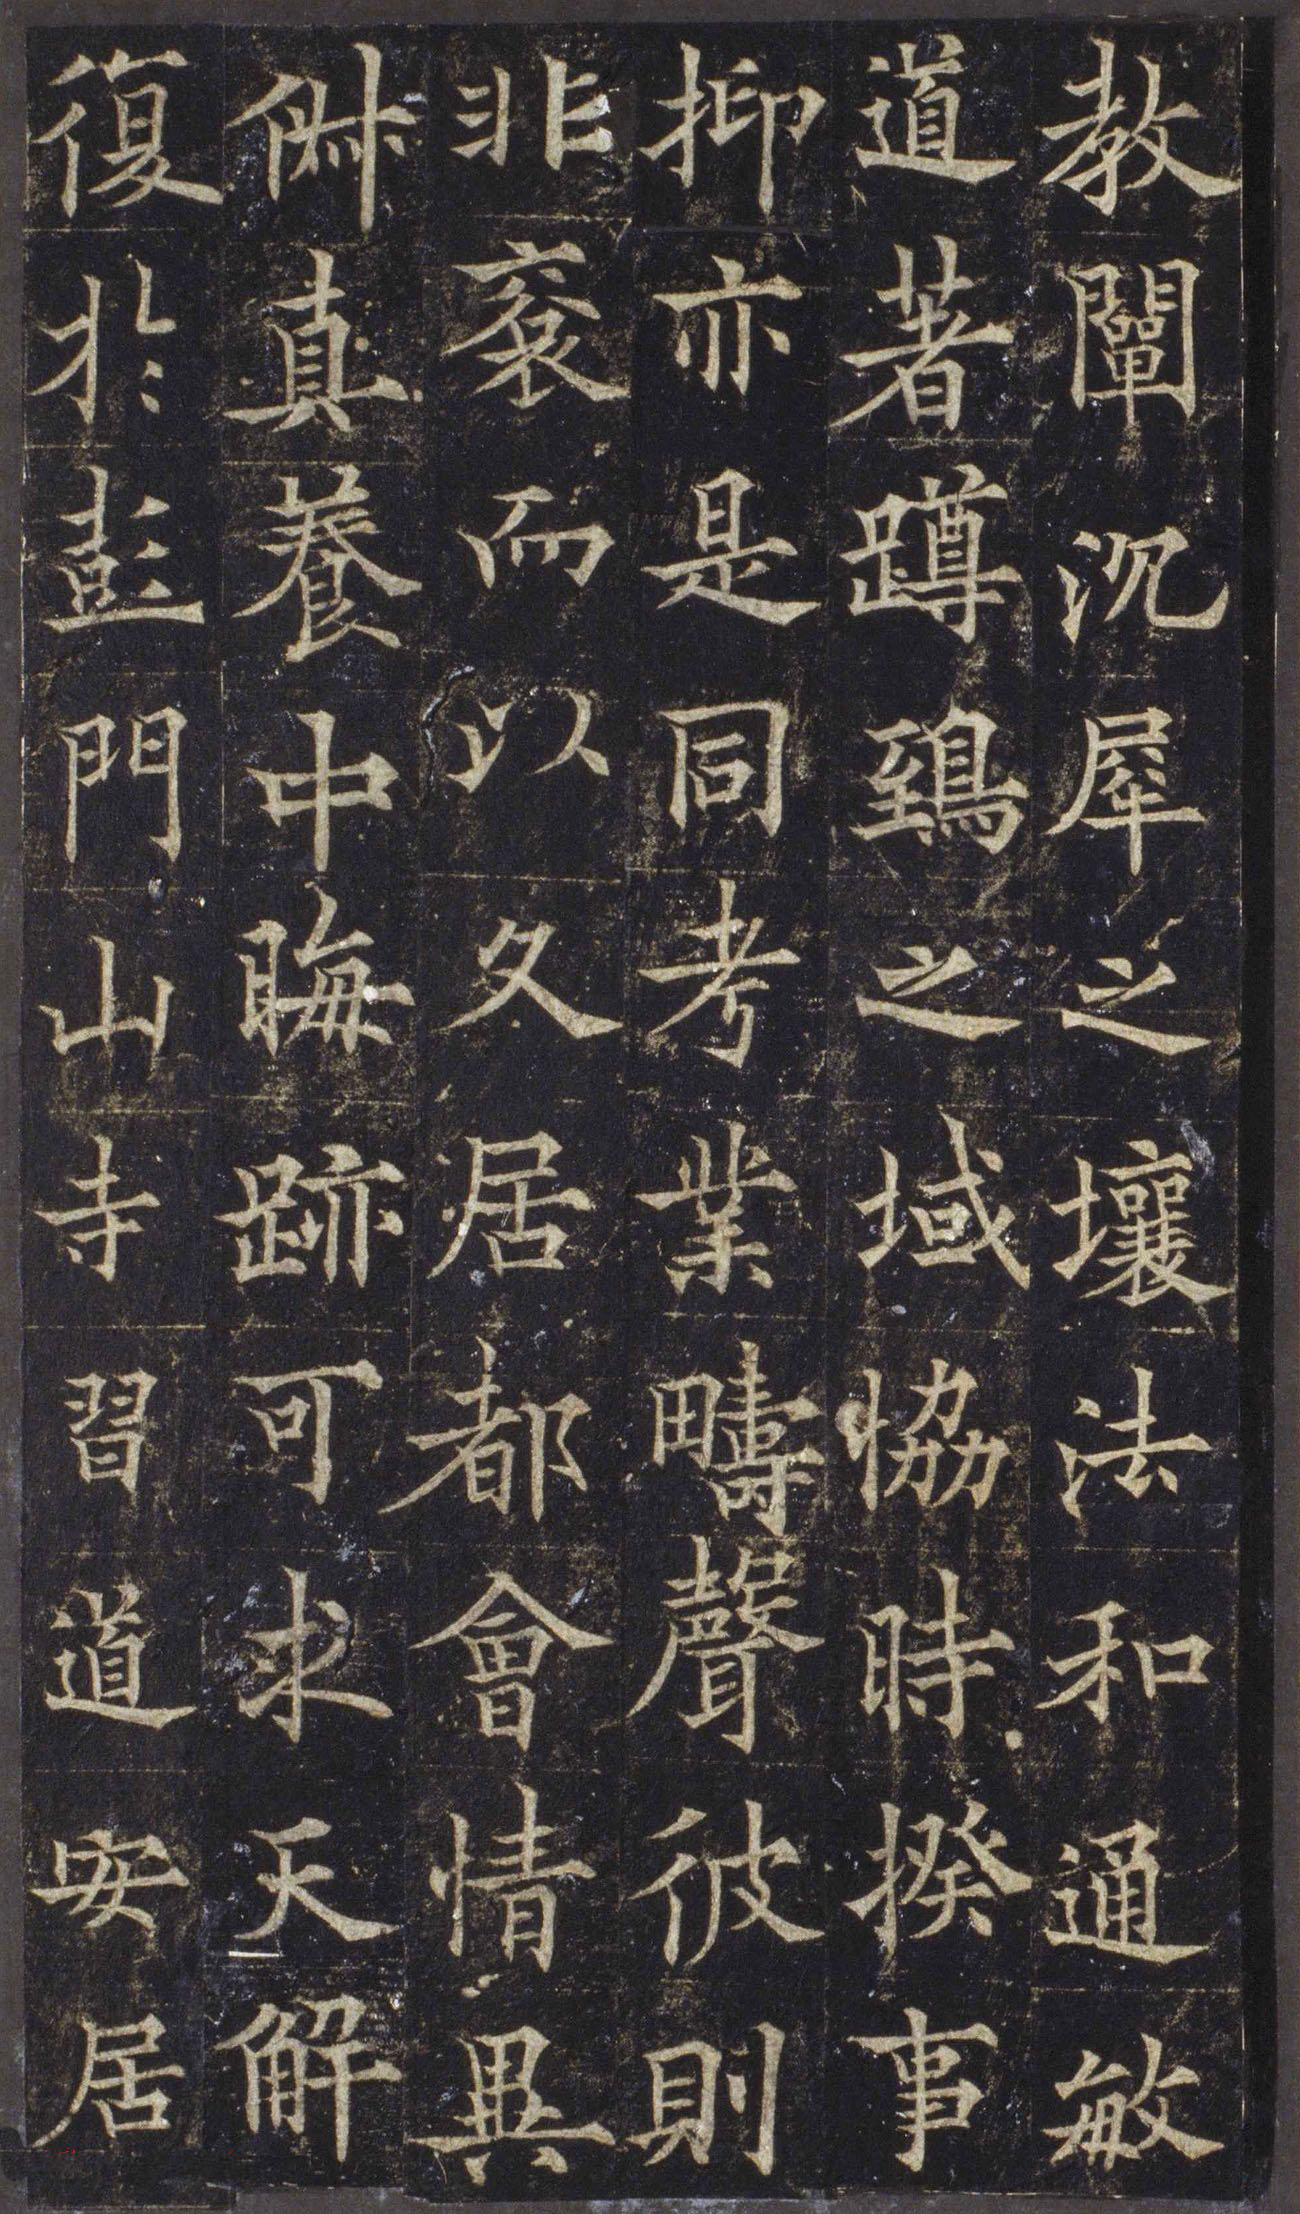 教闡沉犀之壤法和通敏
道著蹲鵄之域協時揆事
抑亦是同考業疇聲彼則
非衮而以久居都會情異
俶真養中晦跡可求天解
復於彭門山寺習道安居